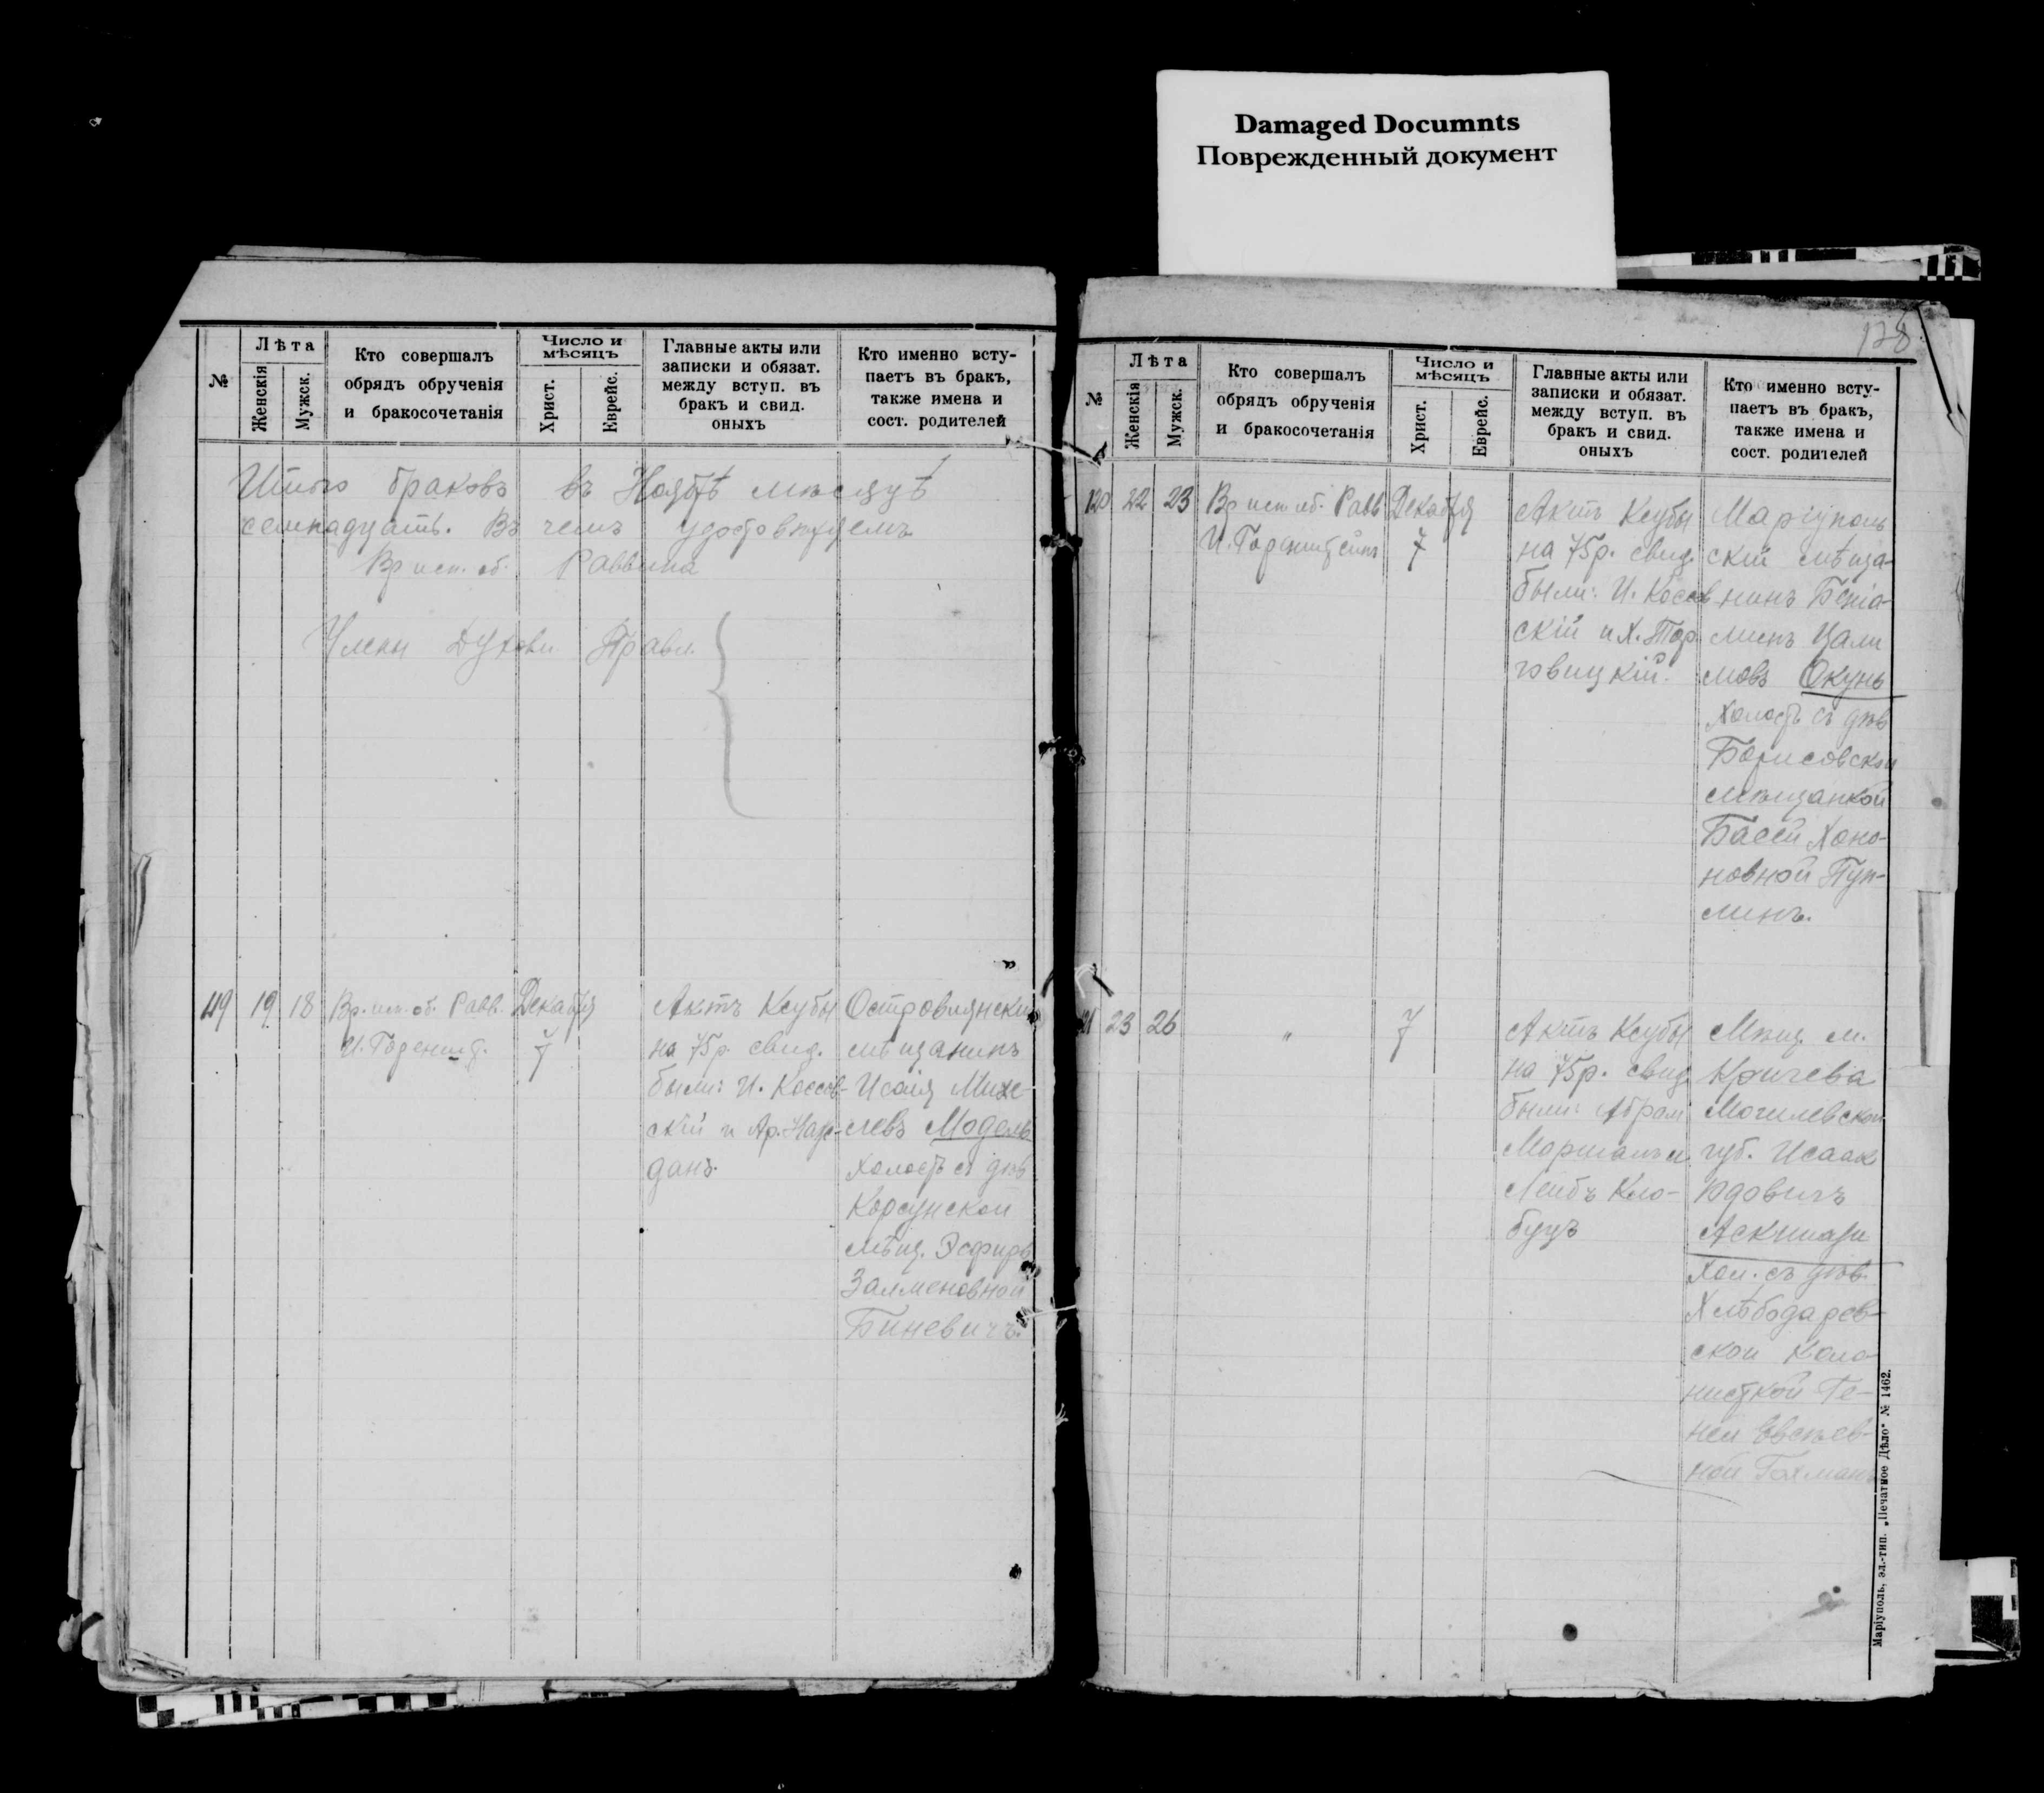 Damaged Documnts
Поврежденный документ
№
Лѣта
Женскія
Мужск.
Кто совершалъ
обрядъ обрученія
и бракосочетанія
Число и
мѣсяцъ
Христ.
Еврейс.
Главные акты или
записки и обязат.
между вступ. въ
бракъ и свид.
оныхъ
Кто именно всту-
паетъ въ бракъ,
также имена и
сост. родителей
Итого браковъ въ Ноябрѣ мѣсяцѣ
семнадцать. Въ чемъ удостовѣряемъ.
Вр исп. об. Раввина
Члены Духовн Правл.
119 19 18
Вр. исп. об. Равв.
И. Гореншт.
Декабря
7
Актъ Ксубы
на 75р. свид.
были: И. Коссов-
скій и Ар.
данъ.
Островлянскій
мѣщанинъ
Исаія Михе-
левъ Модель
холостъ съ дѣв
Корсунской
мѣщ. Эсфирь
Залменовной
Биневичъ.
128
№
Лѣта
Женскія
Мужск.
Кто совершалъ
обрядъ обрученія
и бракосочетанія
Число и
мѣсяцъ
Христ.
Еврейс.
Главные акты или
записки и обязат.
между вступ. въ
бракъ и свид.
оныхъ
Кто именно всту-
паетъ въ бракъ,
также имена и
сост. родителей
120 22 23
Вр исп об. Равв
И. Горенштейнъ
Декабря
7
Актъ Ксубы
на 75р. свид.
были: И. Коссов
скій и Х. Тор
говицкій.
Маріуполь
скій мѣща-
нинъ Беніа-
минъ Цали
мовъ Окунь
холостъ съ дѣв
Борисовской
мѣщанкой
Басей Хоно-
новной Пуп-
минъ.
121 23 26
"
7
Актъ Ксубы
на 75р. свид
были: Абрам
Маршалъ и
Лейбъ Кло-
буцъ
Мѣщ. м.
Кричева
Могилевской
губ. Исаак
Юдовичъ
Аскинази
хол. съ дѣв.
Хлѣбодаров-
ской коло-
нисткой Ге-
ней Евсѣев-
ной Гохманъ
Маріуполь, эл.-тип. „Печатное Дѣло“ № 1462.